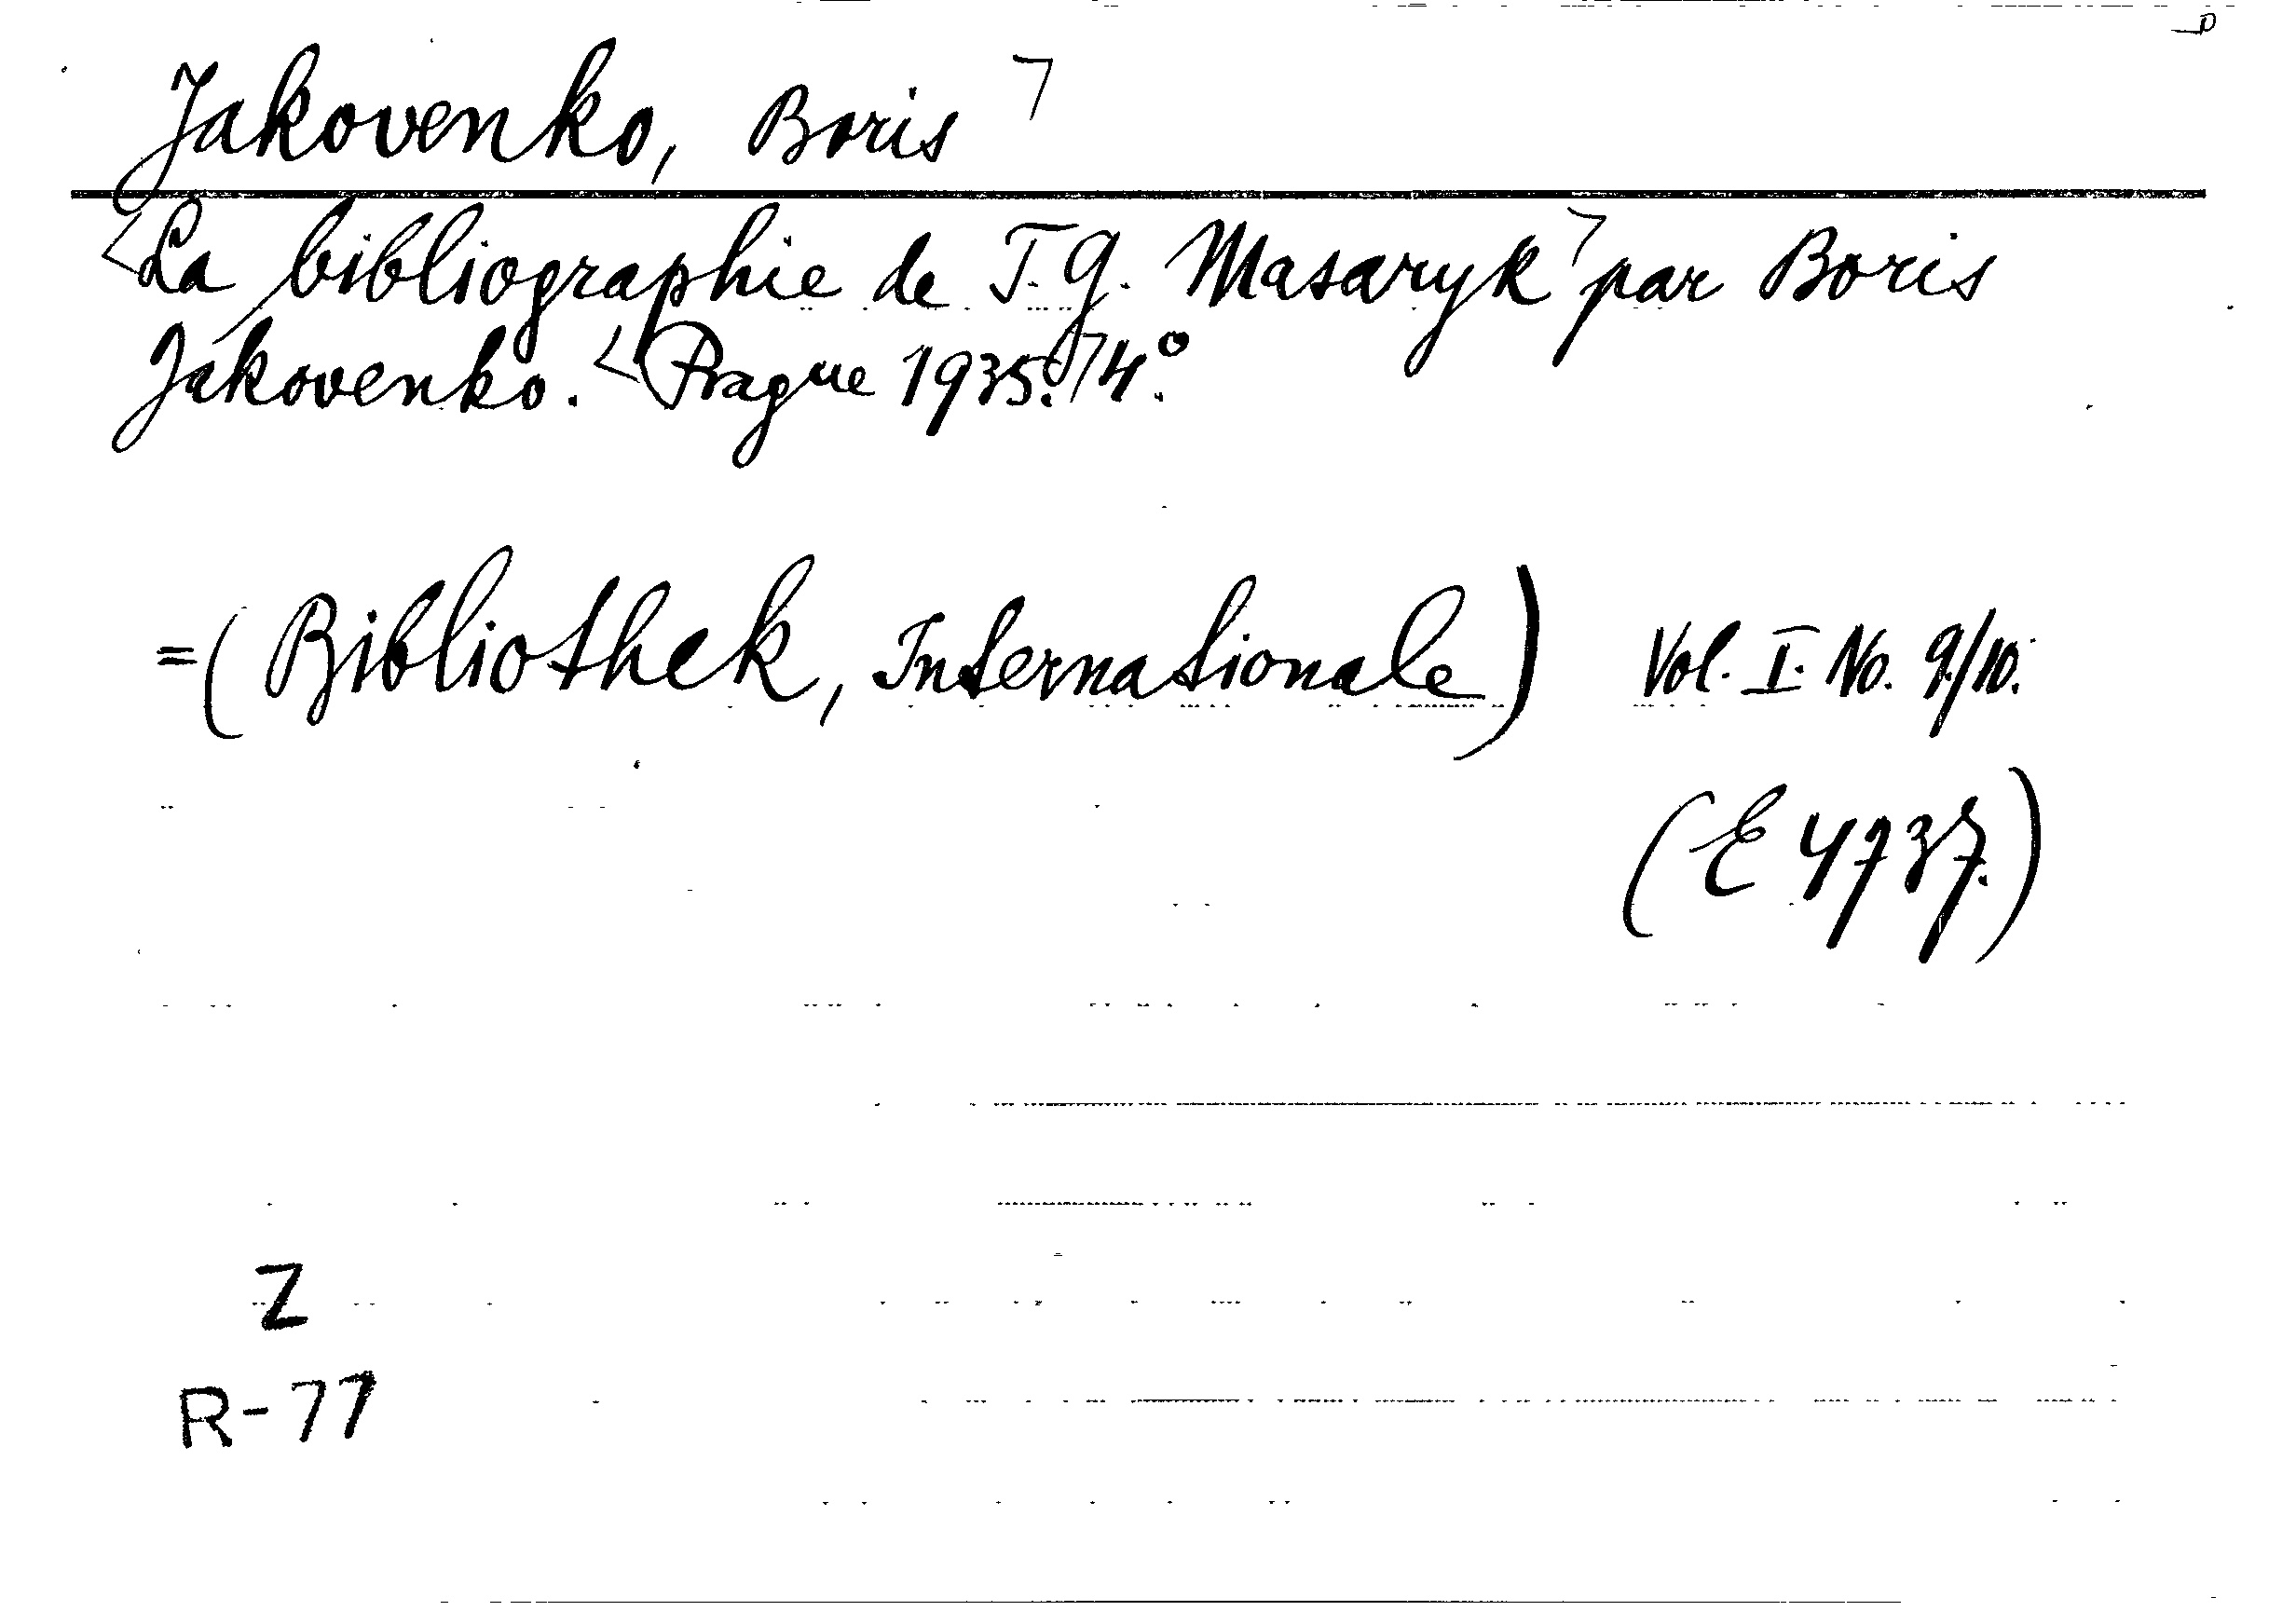 Jakovenko, Boris
La bibliographie de T. G. Masaryk par Boris
Jakovenko. Prague 1935. 4°.
=(Bibliothek, Internationale) Vol. I. No. 9/10.
(E 4737.)
Z
R-77